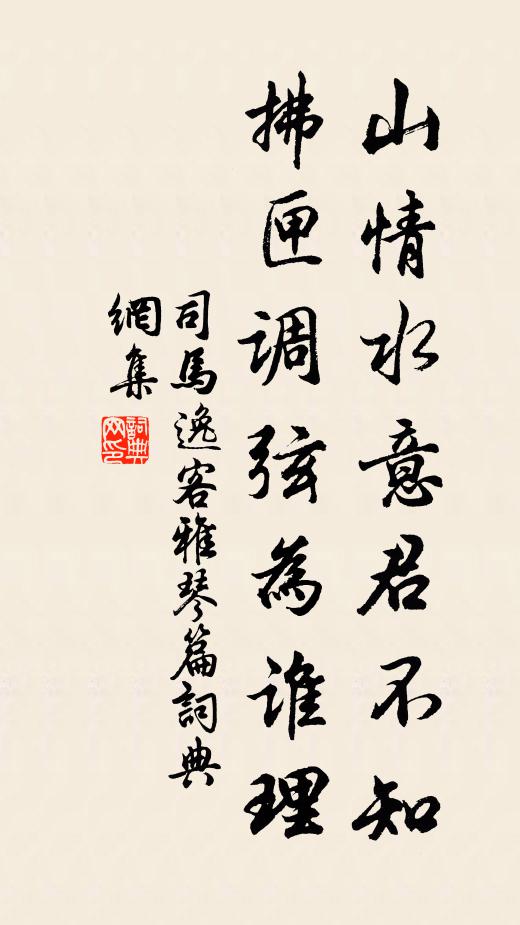 山情水意君不知
拂匣調弦為誰理
司馬逸客雅琴篇詞典
網集
詞典
网印